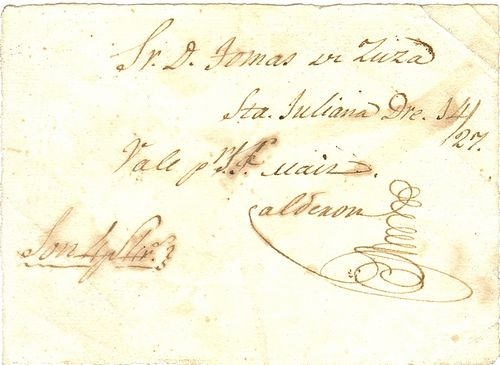 Sr. D. Tomas de Zuza
Sta. Juliana Dre. 14/27.
Vale pr. maiz.
Calderon
Son 4 ps.